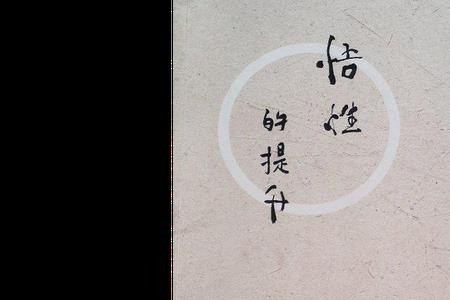 悟性
的提升